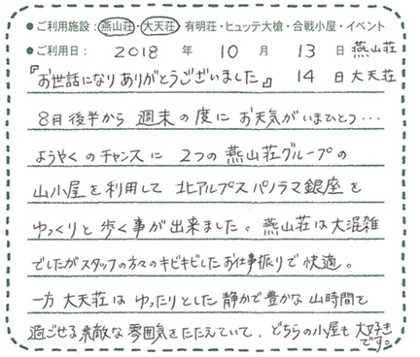 ●ご利用施設：燕山荘・大天荘・有明荘・ヒュッテ大槍・合戦小屋・イベント
●ご利用日： 2018 年 10 月 13 日 燕山荘
『お世話になりありがとうございました』 14 日 大天荘
8月後半から 週末の度に お天気がいまひとつ…
ようやくのチャンスに 2つの 燕山荘グループの
山小屋を利用して 北アルプスパノラマ銀座を
ゆっくりと 歩く事が出来ました。燕山荘は大混雑
でしたがスタッフの方々のキビキビしたお仕事振りで 快適。
一方 大天荘は ゆったりとした 静かで豊かな 山時間を
過ごせる素敵な 雰囲気をたたえていて、どちらの小屋も大好き
です。